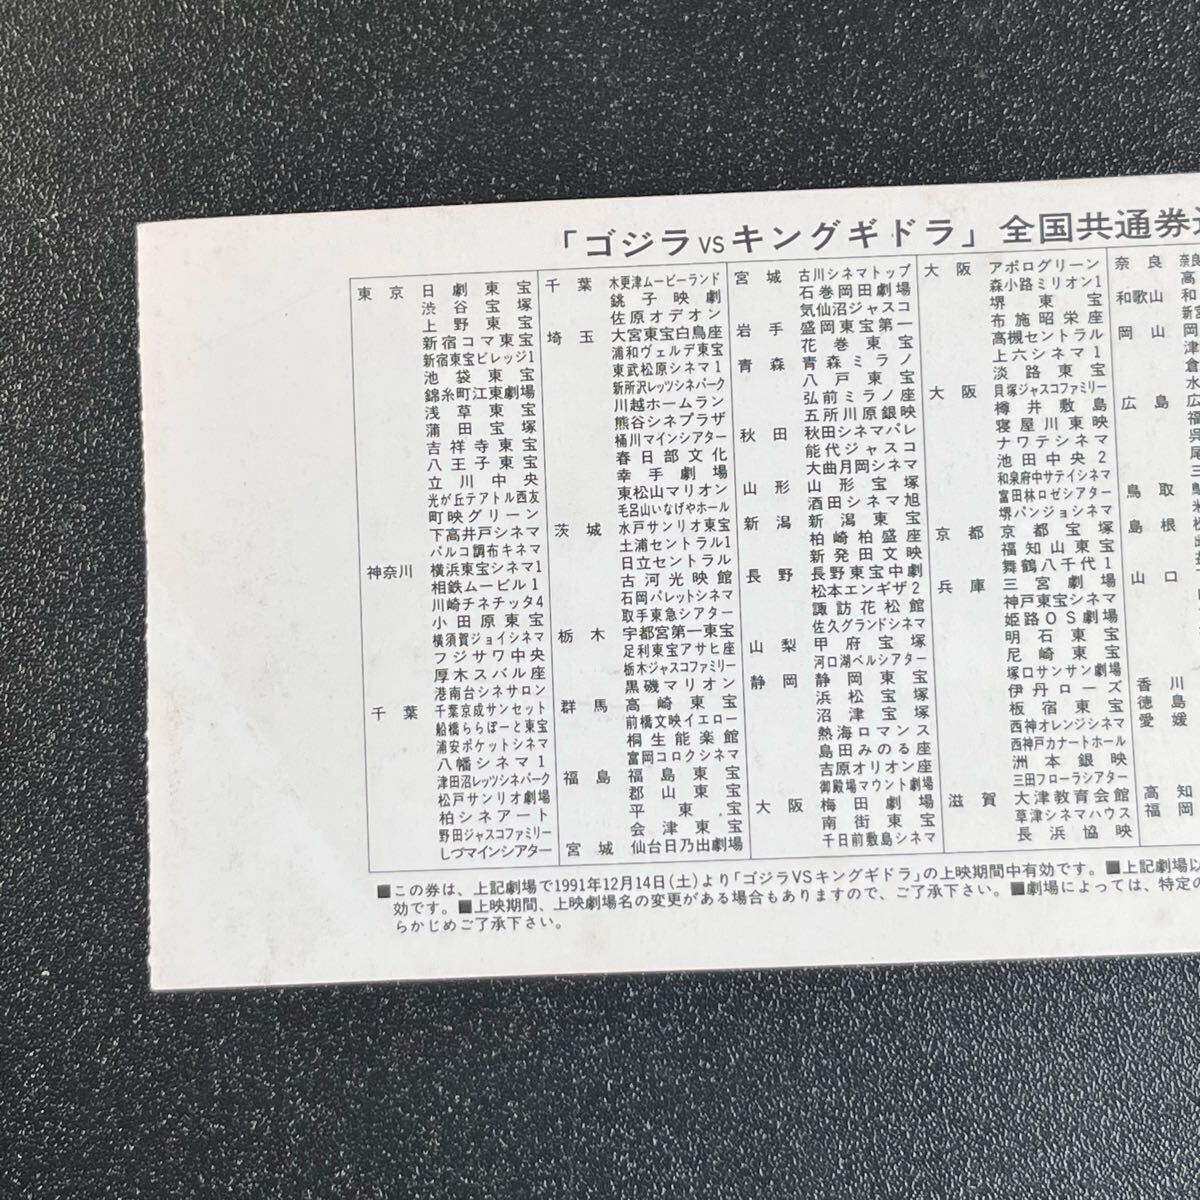 「ゴジラVSキングギドラ」全国共通券
東京 日劇東宝
渋谷宝塚
上野東宝
新宿コマ東宝
新宿東宝ビレッジ1
池袋東宝
錦糸町江東劇場
浅草東宝
蒲田宝塚
吉祥寺東宝
八王子東宝
立川中央
光が丘テアトル西友
町映グリーン
下高井戸シネマ
パルコ調布キネマ
神奈川 横浜東宝シネマ1
相鉄ムービル1
川崎チネチッタ4
小田原東宝
横須賀ジョイシネマ
フジサワ中央
厚木スバル座
港南台シネサロン
千葉 千葉京成サンセット
船橋ららぽーと東宝
浦安ポケットシネマ
八幡シネマ1
津田沼レッツシネパーク
松戸サンリオ劇場
柏シネアート
野田ジャスコファミリー
しづマインシアター
千葉 木更津ムービーランド
銚子映劇
佐原オデオン
埼玉 大宮東宝白鳥座
浦和ヴェルデ東宝
東武松原シネマ1
新所沢レッツシネパーク
川越ホームラン
熊谷シネプラザ
桶川マインシアター
春日部文化
幸手劇場
東松山マリオン
毛呂山いなげやホール
茨城 水戸サンリオ東宝
土浦セントラル1
日立セントラル
古河光映館
石岡パレットシネマ
取手東急シアター
栃木 宇都宮第一東宝
足利東宝アサヒ座
栃木ジャスコファミリー
黒磯マリオン
群馬 高崎東宝
前橋文映イエロー
桐生能楽館
富岡コロクシネマ
福島 福島東宝
郡山東宝
平東宝
会津東宝
宮城 仙台日乃出劇場
宮城 古川シネマトップ
石巻岡田劇場
気仙沼ジャスコ
岩手 盛岡東宝第一
花巻東宝
青森 青森ミラノ
八戸東宝
弘前ミラノ座
五所川原銀映
秋田 秋田シネマパレ
能代ジャスコ
大曲月岡シネマ
山形 山形宝塚
酒田シネマ旭
新潟 新潟東宝
柏崎柏盛座
新発田文映
長野 長野東宝中劇
松本エンギザ2
諏訪花松館
佐久グランドシネマ
山梨 甲府宝塚
河口湖ベルシアター
静岡 静岡東宝
浜松宝塚
沼津宝塚
熱海ロマンス
島田みのる座
吉原オリオン座
御殿場マウント劇場
大阪 梅田劇場
南街東宝
千日前敷島シネマ
大阪 アポログリーン
森小路ミリオン1
堺東宝
布施昭栄座
高槻セントラル
上六シネマ1
淡路東宝
大阪 貝塚ジャスコファミリー
樽井敷島
寝屋川東映
ナワテシネマ
池田中央2
和泉府中サテイシネマ
富田林ロゼシアター
堺パンジョシネマ
京都 京都宝塚
福知山東宝
舞鶴八千代1
兵庫 三宮劇場
神戸東宝シネマ
姫路OS劇場
明石東宝
尼崎東宝
塚口サンサン劇場
伊丹ローズ
板宿東宝
西神オレンジシネマ
西神戸カナートホール
洲本銀映
三田フローラシアター
滋賀 大津教育会館
草津シネマハウス
長浜協映
奈良 奈良
高
和歌山 和
新宮
岡山 岡
津
倉
水
広島 広
福
呉
尾
三
鳥取
米
島根
山口
香川
徳島
愛媛
高知
福岡
■この券は、上記劇場で1991年12月14日(土)より「ゴジラVSキングギドラ」の上映期間中有効です。■上記劇場以
効です。■上映期間、上映劇場名の変更がある場合もありますので、ご了承下さい。■劇場によっては、特定の
らかじめご了承下さい。